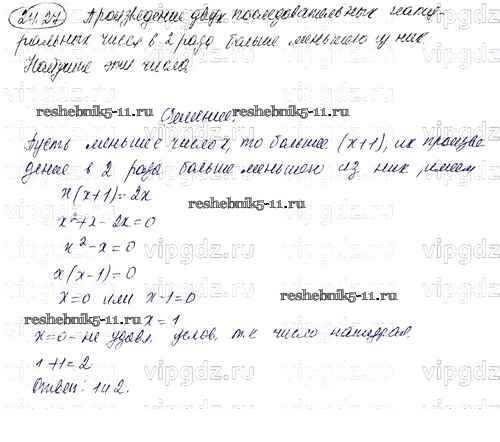 24.27 Произведение двух последовательных нату-
ральных чисел в 2 раза больше меньшего из них.
Найдите эти числа.
reshebnik5-11.ru Решение reshebnik5-11.ru
Пусть меньшее число x, то большее (x+1), их произве-
дение в 2 раза больше меньшего из них, имеем
x(x+1)=2x
reshebnik5-11.ru
x²+x-2x=0
x²-x=0
x(x-1)=0
x=0 или x-1=0
reshebnik5-11.ru
reshebnik5-11.ru x=1
x=0- не удовл. услов, т.к число натурал.
1+1=2
Ответ: 1 и 2.
vipgdz.ru
vipgdz.ru
vipgdz.ru
vipgdz.ru